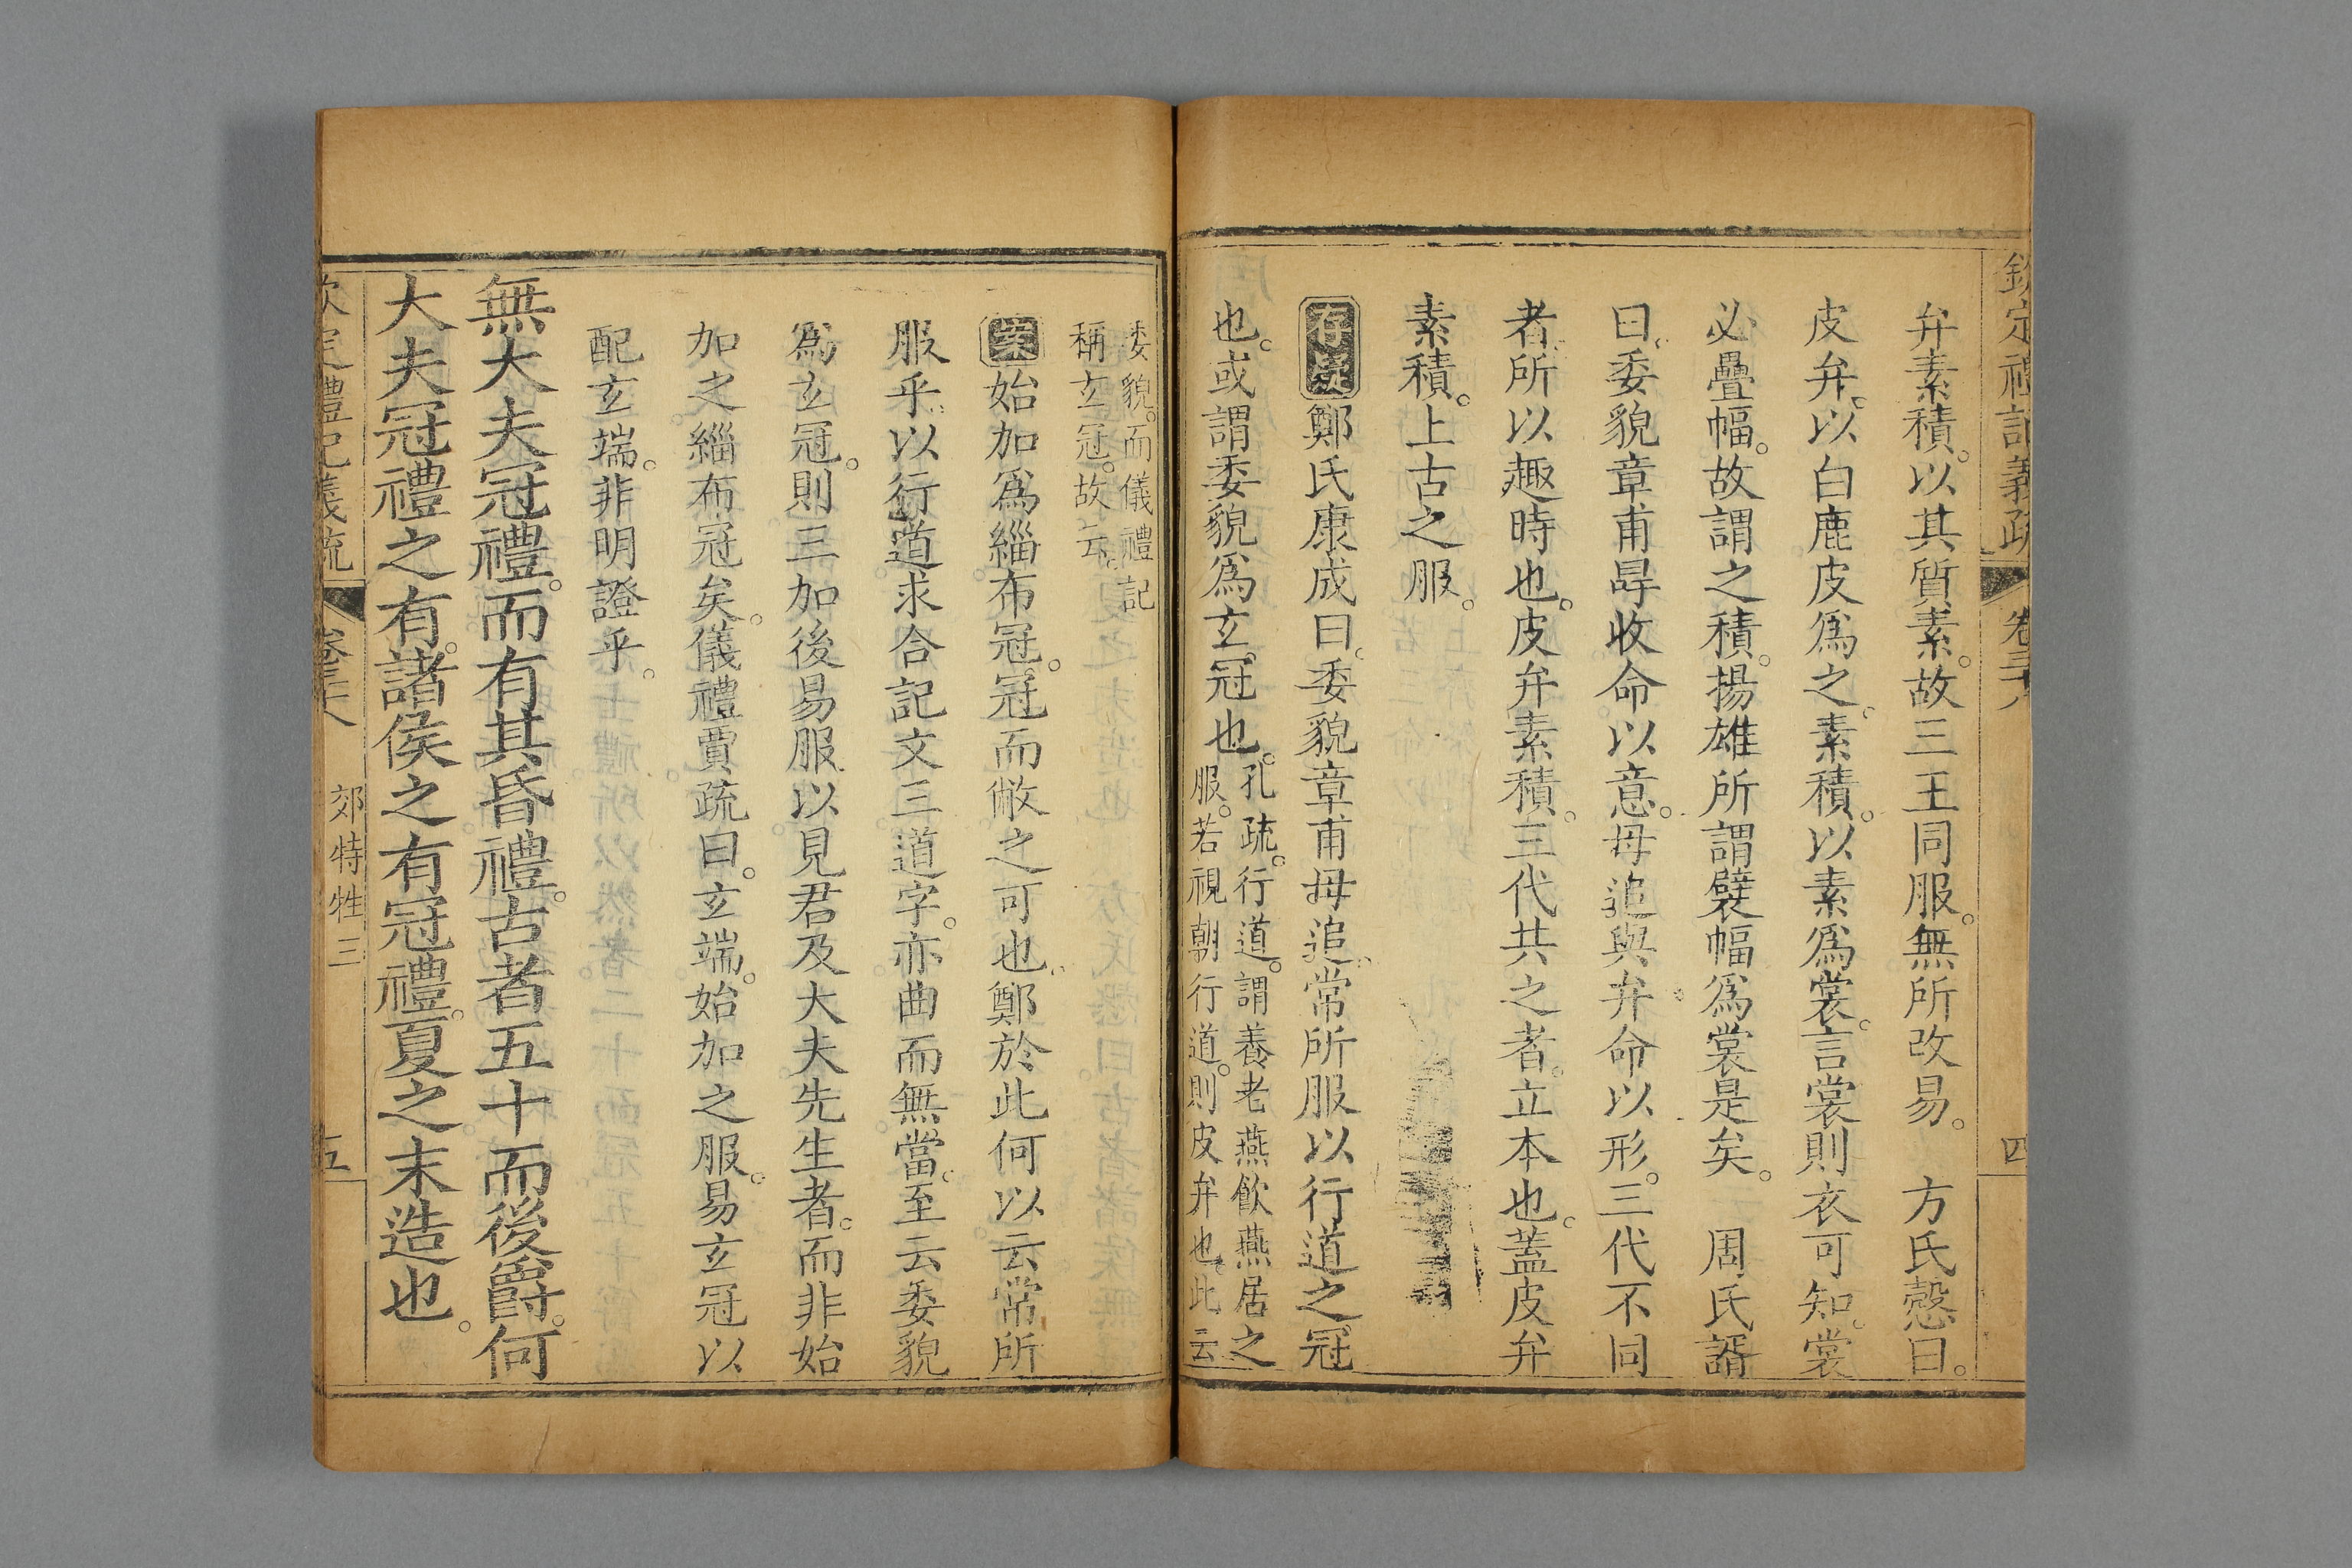 欽定禮記義疏 卷三十八 四
弁素積。以其質素。故三王同服。無所改易。 方氏慤曰。
皮弁。以白鹿皮爲之。素積。以素爲裳。言裳則衣可知。裳
必疊幅。故謂之積。揚雄所謂襞幅爲裳是矣。 周氏諝
曰。委貌章甫冔收命以意。毋追與弁命以形。三代不同
者。所以趣時也。皮弁素積。三代共之者。立本也。蓋皮弁
素積。上古之服。
存疑鄭氏康成曰。委貌章甫毋追。常所服以行道之冠
也。或謂委貌爲玄冠也。孔疏。行道。謂養老燕飮燕居之
服。若視朝行道。則皮弁也。此云
委貌。而儀禮記
稱玄冠。故云。
案始加爲緇布冠。冠而敝之可也。鄭於此何以云常所
服乎。以行道求合記文三道字。亦曲而無當。至云委貌
爲玄冠。則三加後易服以見君及大夫先生者。而非始
加之緇布冠矣。儀禮賈疏曰。玄端。始加之服。易玄冠以
配玄端。非明證乎。
無大夫冠禮。而有其昏禮。古者五十而後爵。何
大夫冠禮之有。諸侯之有冠禮。夏之末造也。
欽定禮記義疏 卷三十八 郊特牲三 五